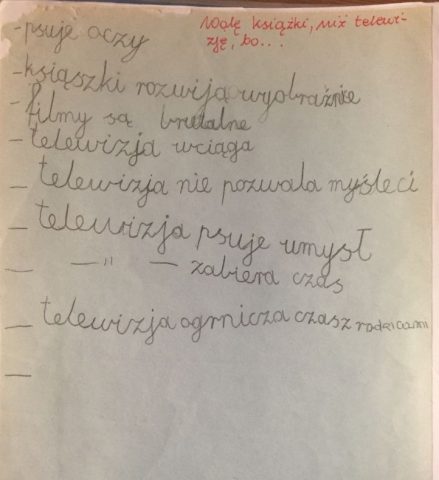 Wolę książki, niż telewi-
zję, bo...
- psuje oczy
- ksiąszki rozwija wyobraźnie
- filmy są brutalne
- telewizja wciąga
- telewizja nie pozwala myśleci
- telewizja psuje umysł
- —"— zabiera czas
- telewizja ogrnicza czas z rodzicami
-